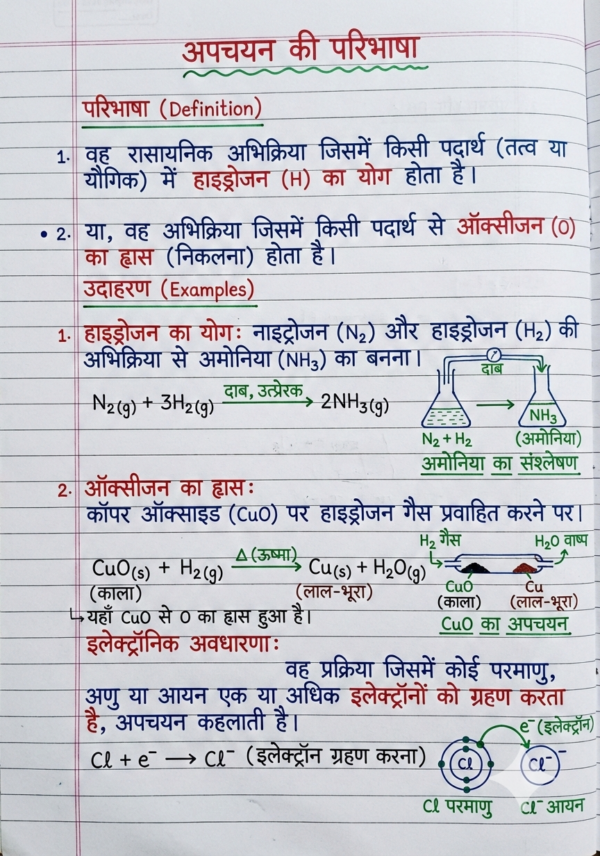 अपचयन की परिभाषा
परिभाषा (Definition)
1. वह रासायनिक अभिक्रिया जिसमें किसी पदार्थ (तत्व या
यौगिक) में हाइड्रोजन (H) का योग होता है।
• 2. या, वह अभिक्रिया जिसमें किसी पदार्थ से ऑक्सीजन (O)
का ह्रास (निकलना) होता है।
उदाहरण (Examples)
1. हाइड्रोजन का योग: नाइट्रोजन (N₂) और हाइड्रोजन (H₂) की
अभिक्रिया से अमोनिया (NH₃) का बनना।
दाब
N₂(g) + 3H₂(g) दाब, उत्प्रेरक→ 2NH₃(g)
NH₃
N₂ + H₂ → (अमोनिया)
अमोनिया का संश्लेषण
2. ऑक्सीजन का ह्रास:
कॉपर ऑक्साइड (CuO) पर हाइड्रोजन गैस प्रवाहित करने पर।
H₂ गैस H₂O वाष्प
CuO(s) + H₂(g) Δ (ऊष्मा)→ Cu(s) + H₂O(g)
(काला) (लाल-भूरा)
CuO Cu
(काला) (लाल-भूरा)
↳ यहाँ CuO से O का ह्रास हुआ है।
CuO का अपचयन
इलेक्ट्रॉनिक अवधारणा:
वह प्रक्रिया जिसमें कोई परमाणु,
अणु या आयन एक या अधिक इलेक्ट्रॉनों को ग्रहण करता
है, अपचयन कहलाती है।
e⁻ (इलेक्ट्रॉन)
Cl + e⁻ → Cl⁻ (इलेक्ट्रॉन ग्रहण करना)
Cl Cl⁻ ⁻
Cl परमाणु Cl⁻ आयन